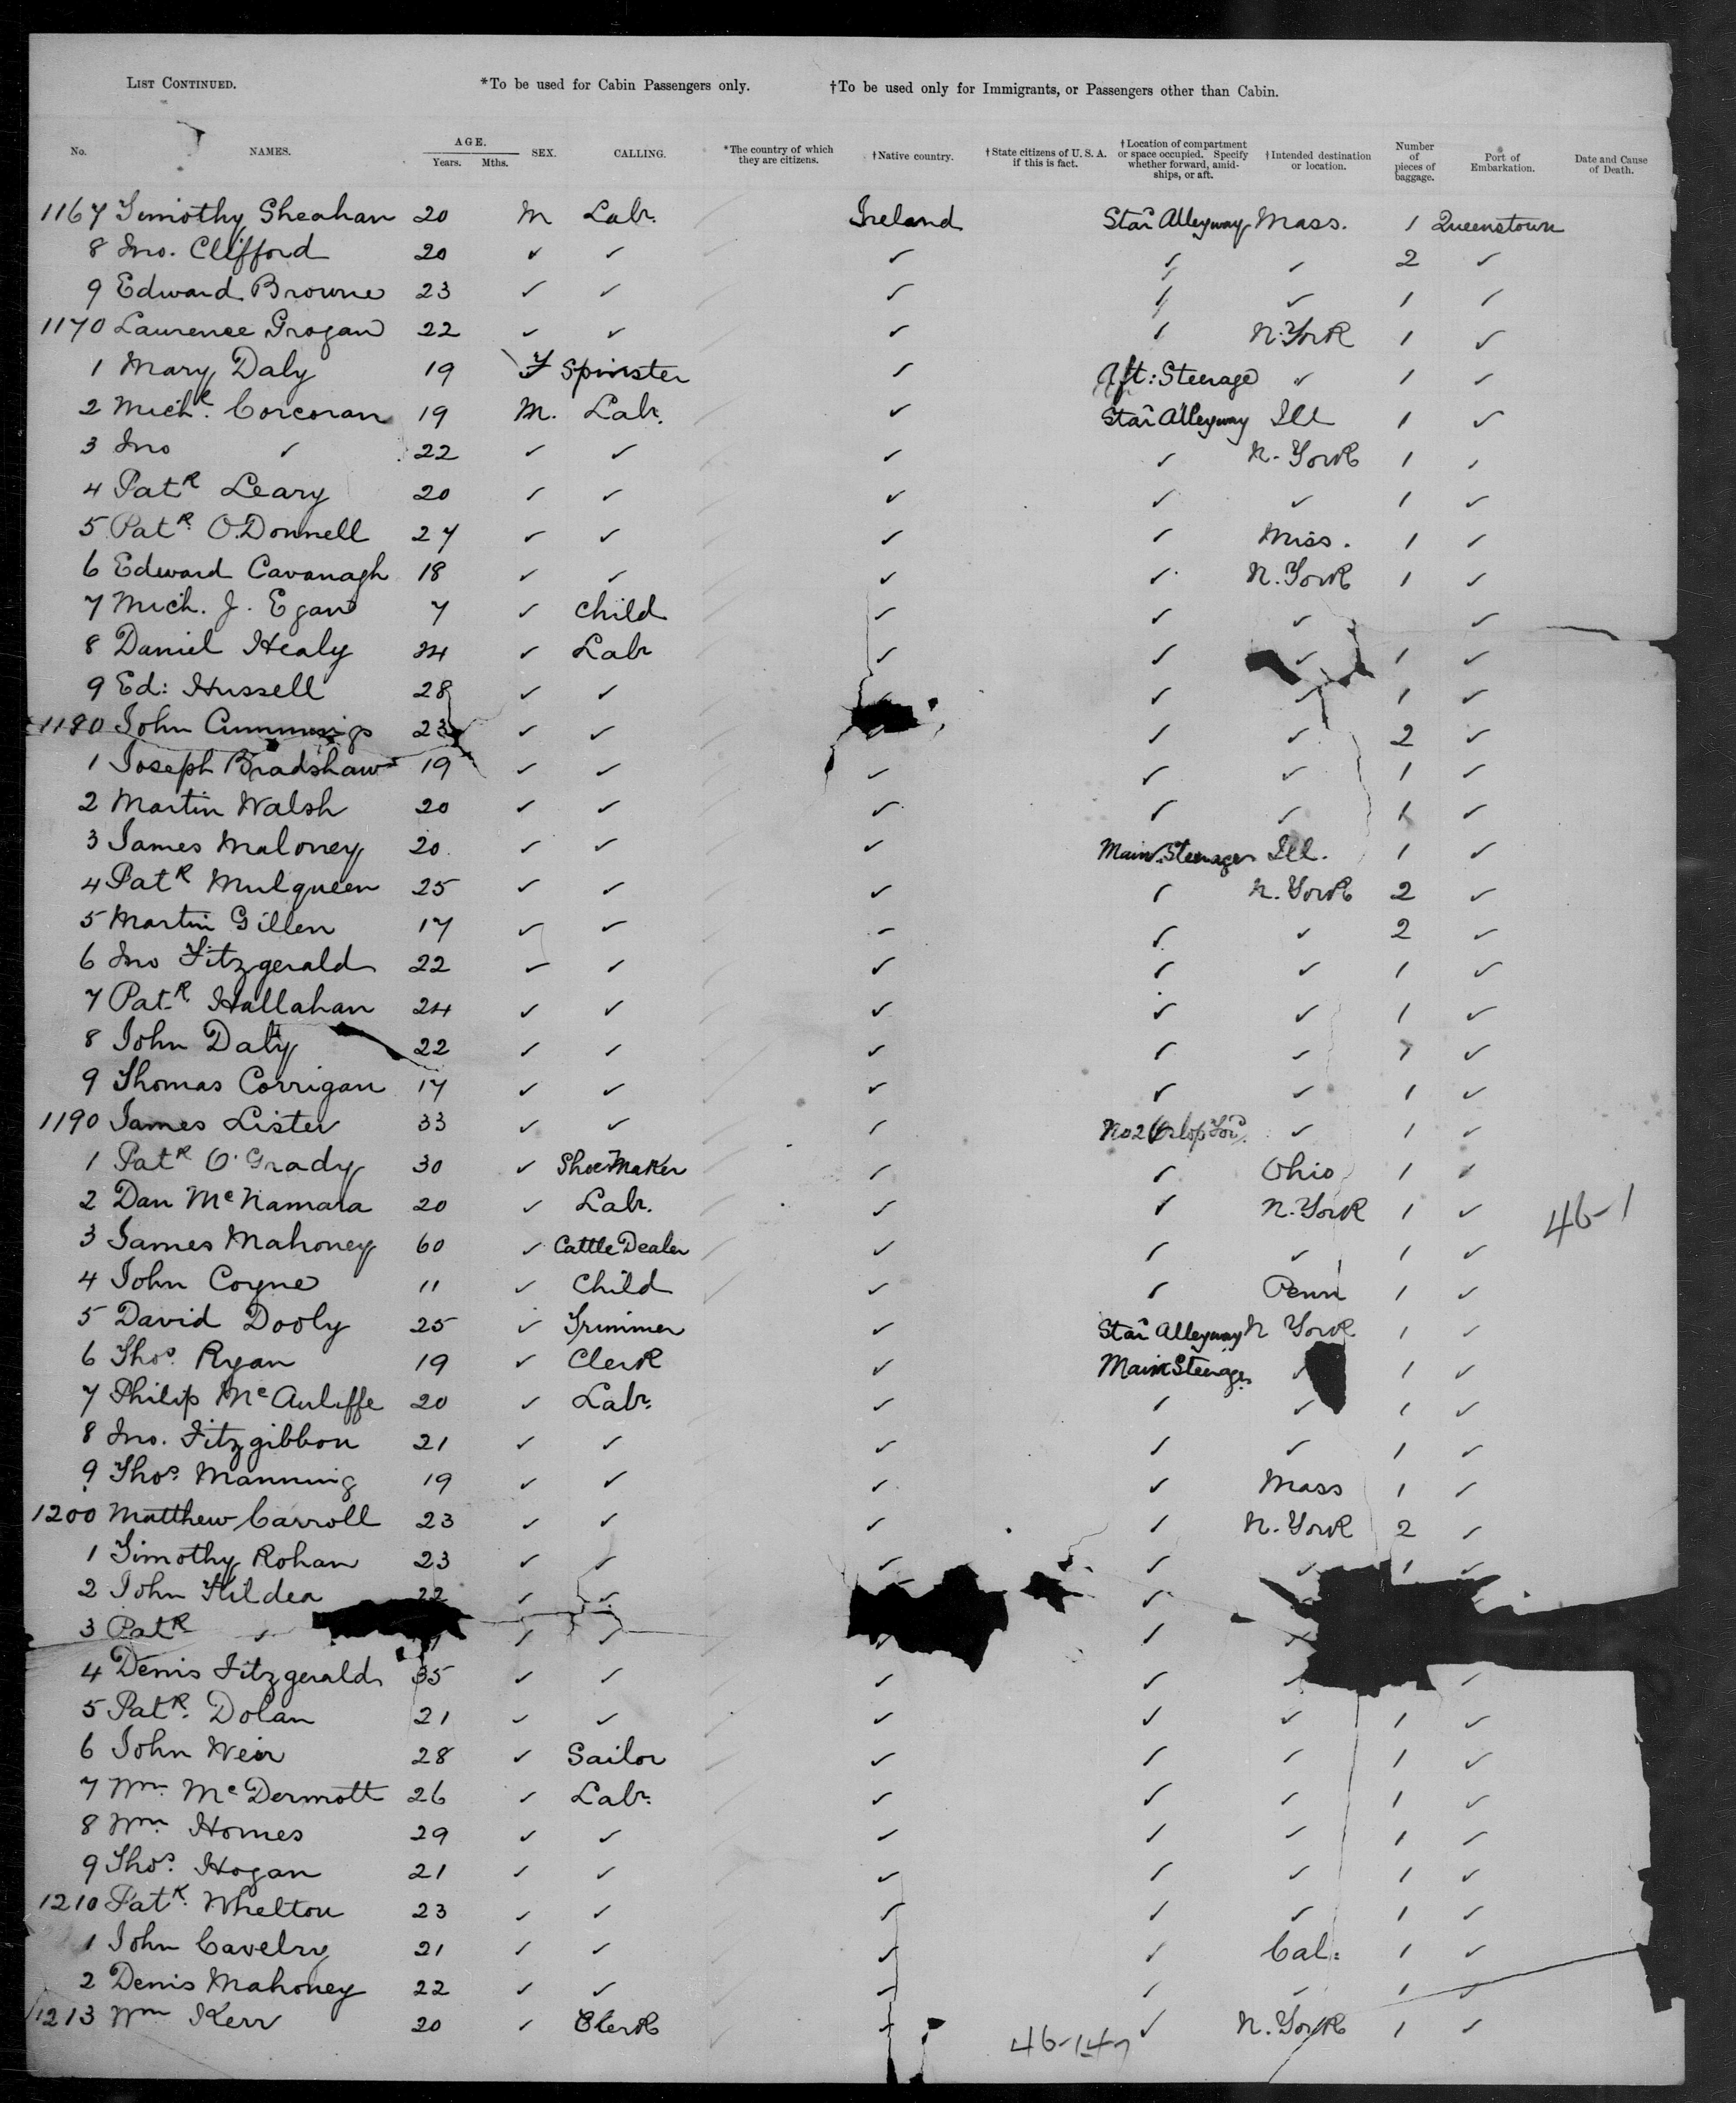 LIST CONTINUED. *To be used for Cabin Passengers only. †To be used only for Immigrants, or Passengers other than Cabin.
No. NAMES. AGE. Years. Mths. SEX. CALLING. *The country of which they are citizens. †Native country. †State citizens of U. S. A. if this is fact. †Location of compartment or space occupied. Specify whether forward, amidships, or aft. †Intended destination or location. Number of pieces of baggage. Port of Embarkation. Date and Cause of Death.
1167 Timothy Sheahan 20 M Labr. Ireland Star Alleyway Mass. 1 Queenstown
8 Jno. Clifford 20 ✓ ✓ ✓ ✓ ✓ 2 ✓
9 Edward Browne 23 ✓ ✓ ✓ ✓ ✓ 1 ✓
1170 Laurence Grogan 22 ✓ ✓ ✓ ✓ N. York 1 ✓
1 Mary Daly 19 F Spinster ✓ Aft: Steerage ✓ 1 ✓
2 Michl. Corcoran 19 M. Labr. ✓ Star Alleyway Ill 1 ✓
3 Jno ✓ 22 ✓ ✓ ✓ ✓ N. York 1 ✓
4 Patk Leary 20 ✓ ✓ ✓ ✓ ✓ 1 ✓
5 Patk. O'Donnell 27 ✓ ✓ ✓ ✓ Miss. 1 ✓
6 Edward Cavanagh 18 ✓ ✓ ✓ ✓ N. York 1 ✓
7 Mich. J. Egan 7 ✓ Child ✓ ✓ ✓ ✓
8 Daniel Healy 24 ✓ Labr ✓ ✓ ✓ 1 ✓
9 Ed: Hussell 28 ✓ ✓ ✓ ✓ ✓ 1 ✓
1180 John Cummings 23 ✓ ✓ ✓ ✓ 2 ✓
1 Joseph Bradshaw 19 ✓ ✓ ✓ ✓ ✓ 1 ✓
2 Martin Walsh 20 ✓ ✓ ✓ ✓ ✓ 1 ✓
3 James Maloney 20 ✓ ✓ ✓ Main Steerage Ill. 1 ✓
4 Patk Mulqueen 25 ✓ ✓ ✓ ✓ N. York 2 ✓
5 Martin Gillen 17 ✓ ✓ ✓ ✓ ✓ 2 ✓
6 Jno Fitzgerald 22 ✓ ✓ ✓ ✓ ✓ 1 ✓
7 Patk. Hallahan 24 ✓ ✓ ✓ ✓ ✓ 1 ✓
8 John Daly 22 ✓ ✓ ✓ ✓ ✓ 1 ✓
9 Thomas Corrigan 17 ✓ ✓ ✓ ✓ ✓ 1 ✓
1190 James Lister 33 ✓ ✓ ✓ No 2 Orlop Ford. ✓ 1 ✓
1 Patk O'Grady 30 ✓ Shoe Maker ✓ ✓ Ohio 1 ✓
2 Dan McNamara 20 ✓ Labr. ✓ ✓ N. York 1 ✓ 46-1
3 James Mahoney 60 ✓ Cattle Dealer ✓ ✓ ✓ 1 ✓
4 John Coyne 11 ✓ Child ✓ ✓ Penn 1 ✓
5 David Dooly 25 ✓ Trimmer ✓ Star Alleyway N York 1 ✓
6 Thos. Ryan 19 ✓ Clerk ✓ Main Steerage ✓ 1 ✓
7 Philip McAuliffe 20 ✓ Labr. ✓ ✓ ✓ 1 ✓
8 Jno. Fitzgibbon 21 ✓ ✓ ✓ ✓ ✓ 1 ✓
9 Thos. Manning 19 ✓ ✓ ✓ ✓ Mass 1 ✓
1200 Matthew Carroll 23 ✓ ✓ ✓ ✓ N. York 2 ✓
1 Timothy Rohan 23 ✓ ✓ ✓ ✓ ✓ 1 ✓
2 John Kildea 22 ✓ ✓ ✓
3 Patk ✓ ✓ ✓ ✓ ✓ ✓
4 Denis Fitzgerald 35 ✓ ✓ ✓ ✓ ✓ ✓
5 Patk. Dolan 21 ✓ ✓ ✓ ✓ ✓ 1 ✓
6 John Weir 28 ✓ Sailor ✓ ✓ ✓ 1 ✓
7 Wm. McDermott 26 ✓ Labr. ✓ ✓ ✓ 1 ✓
8 Wm. Homes 29 ✓ ✓ ✓ ✓ ✓ 1 ✓
9 Thos. Hogan 21 ✓ ✓ ✓ ✓ ✓ 1 ✓
1210 Patk. Whelton 23 ✓ ✓ ✓ ✓ ✓ 1 ✓
1 John Cavelry 21 ✓ ✓ ✓ ✓ Cal: 1 ✓
2 Denis Mahoney 22 ✓ ✓ ✓ ✓ ✓ 1 ✓
1213 Wm Kerr 20 ✓ Clerk ✓ ✓ N. York 1 ✓
46-147